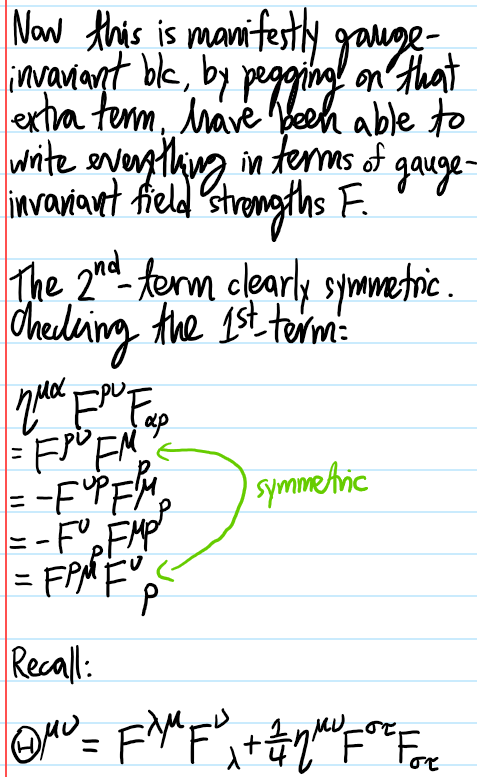 Now this is manifestly gauge-
invariant b/c, by pegging on that
extra term, have been able to
write everything in terms of gauge-
invariant field strengths F.
The 2nd-term clearly symmetric.
Checking the 1st-term:
η^{μα} F^{ρν} F_{αρ}
= F^{ρν} F^{μ}_{ρ}
= -F^{νρ} F^{μ}_{ρ}
symmetric
= -F^{ν}_{ρ} F^{μρ}
= F^{ρμ} F^{ν}_{ρ}
Recall:
Θ^{μν} = F^{λμ} F^{ν}_{λ} + 1/4 η^{μν} F^{στ} F_{στ}